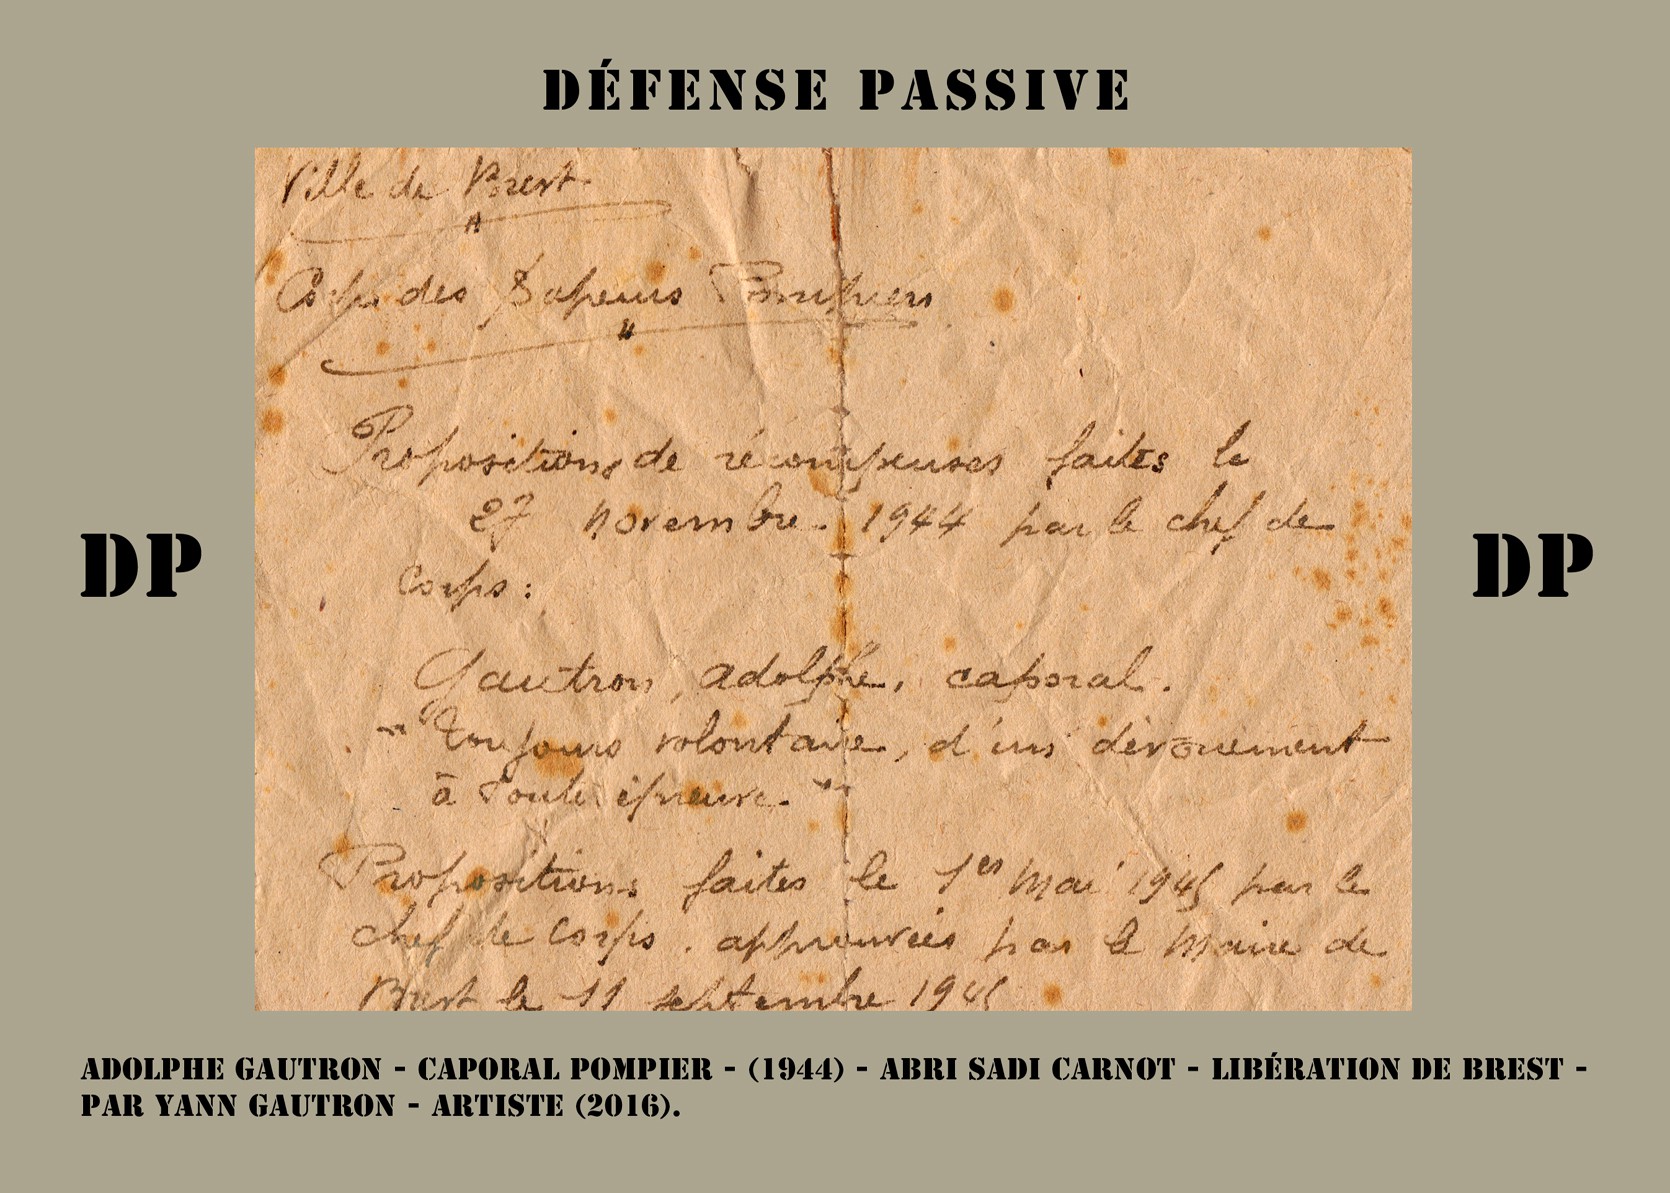 DÉFENSE PASSIVE
Ville de Brest
Corps des Sapeurs Pompiers
Propositions de récompenses faites le
27 novembre 1944 par le chef de
corps :
DP
DP
Gautron, adolphe, caporal.
"Toujours volontaire, d'un dévouement
à toute épreuve."
Propositions faites le 1er Mai 1945 par le
chef de corps. approuvées par le Maire de
Brest le 11 septembre 1945
ADOLPHE GAUTRON - CAPORAL POMPIER - (1944) - ABRI SADI CARNOT - LIBÉRATION DE BREST -
PAR YANN GAUTRON - ARTISTE (2016).